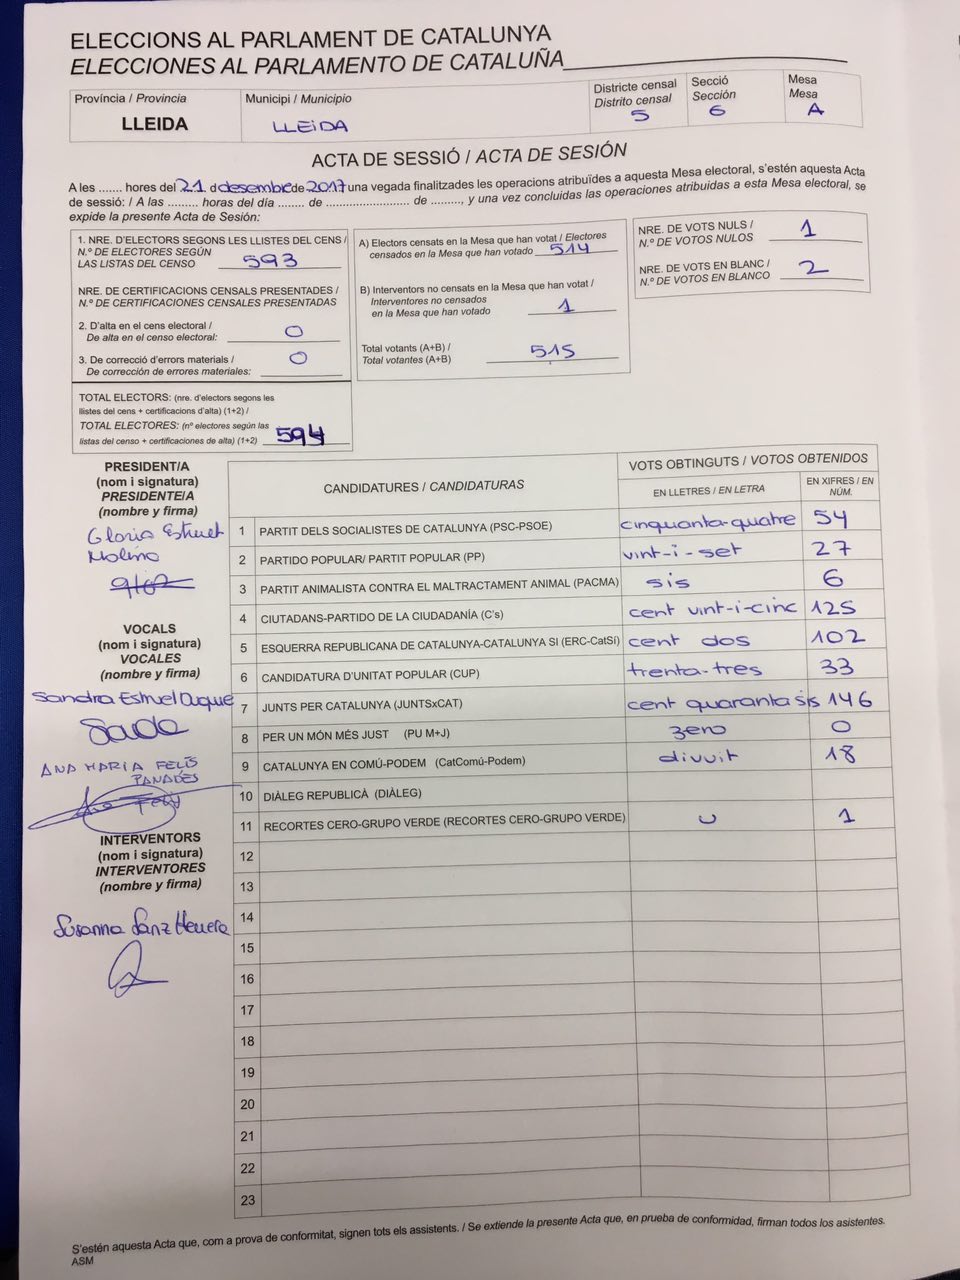 ELECCIONS AL PARLAMENT DE CATALUNYA
ELECCIONES AL PARLAMENTO DE CATALUÑA
Província / Provincia
LLEIDA
Municipi / Municipio
LLEIDA
Districte censal
Distrito censal
5
Secció
Sección
6
Mesa
Mesa
A
ACTA DE SESSIÓ / ACTA DE SESIÓN
A les ....... hores del 21 d desembre de 2017 una vegada finalitzades les operacions atribuïdes a aquesta Mesa electoral, s'estén aquesta Acta
de sessió: / A las ......... horas del día ........ de ......................... de ........., y una vez concluidas las operaciones atribuidas a esta Mesa electoral, se
expide la presente Acta de Sesión:
1. NRE. D'ELECTORS SEGONS LES LLISTES DEL CENS /
N.º DE ELECTORES SEGÚN
LAS LISTAS DEL CENSO 593
NRE. DE CERTIFICACIONS CENSALS PRESENTADES /
N.º DE CERTIFICACIONES CENSALES PRESENTADAS
2. D'alta en el cens electoral /
De alta en el censo electoral: 0
3. De correcció d'errors materials /
De corrección de errores materiales: 0
TOTAL ELECTORS: (nre. d'electors segons les
llistes del cens + certificacions d'alta) (1+2) /
TOTAL ELECTORES: (nº electores según las
listas del censo + certificaciones de alta) (1+2) 594
A) Electors censats en la Mesa que han votat / Electores
censados en la Mesa que han votado 514
B) Interventors no censats en la Mesa que han votat /
Interventores no censados
en la Mesa que han votado 1
Total votants (A+B) /
Total votantes (A+B) 515
NRE. DE VOTS NULS /
N.º DE VOTOS NULOS 1
NRE. DE VOTS EN BLANC /
N.º DE VOTOS EN BLANCO 2
PRESIDENT/A
(nom i signatura)
PRESIDENTE/A
(nombre y firma)
Gloria Estruel
Molino
VOCALS
(nom i signatura)
VOCALES
(nombre y firma)
Sandra Esmel Duque
ANA MARIA FELÍS
PANADÉS
INTERVENTORS
(nom i signatura)
INTERVENTORES
(nombre y firma)
Susanna Sanz Herrera
CANDIDATURES / CANDIDATURAS
VOTS OBTINGUTS / VOTOS OBTENIDOS
EN LLETRES / EN LETRA
EN XIFRES / EN
NÚM.
1 PARTIT DELS SOCIALISTES DE CATALUNYA (PSC-PSOE) cinquanta-quatre 54
2 PARTIDO POPULAR/ PARTIT POPULAR (PP) vint-i-set 27
3 PARTIT ANIMALISTA CONTRA EL MALTRACTAMENT ANIMAL (PACMA) sis 6
4 CIUTADANS-PARTIDO DE LA CIUDADANÍA (C's) cent vint-i-cinc 125
5 ESQUERRA REPUBLICANA DE CATALUNYA-CATALUNYA SI (ERC-CatSí) cent dos 102
6 CANDIDATURA D'UNITAT POPULAR (CUP) trenta-tres 33
7 JUNTS PER CATALUNYA (JUNTSxCAT) cent quaranta sis 146
8 PER UN MÓN MÉS JUST (PU M+J) zero 0
9 CATALUNYA EN COMÚ-PODEM (CatComú-Podem) divuit 18
10 DIÀLEG REPUBLICÀ (DIÀLEG)
11 RECORTES CERO-GRUPO VERDE (RECORTES CERO-GRUPO VERDE) u 1
12
13
14
15
16
17
18
19
20
21
22
23
S'estén aquesta Acta que, com a prova de conformitat, signen tots els assistents. / Se extiende la presente Acta que, en prueba de conformidad, firman todos los asistentes.
ASM